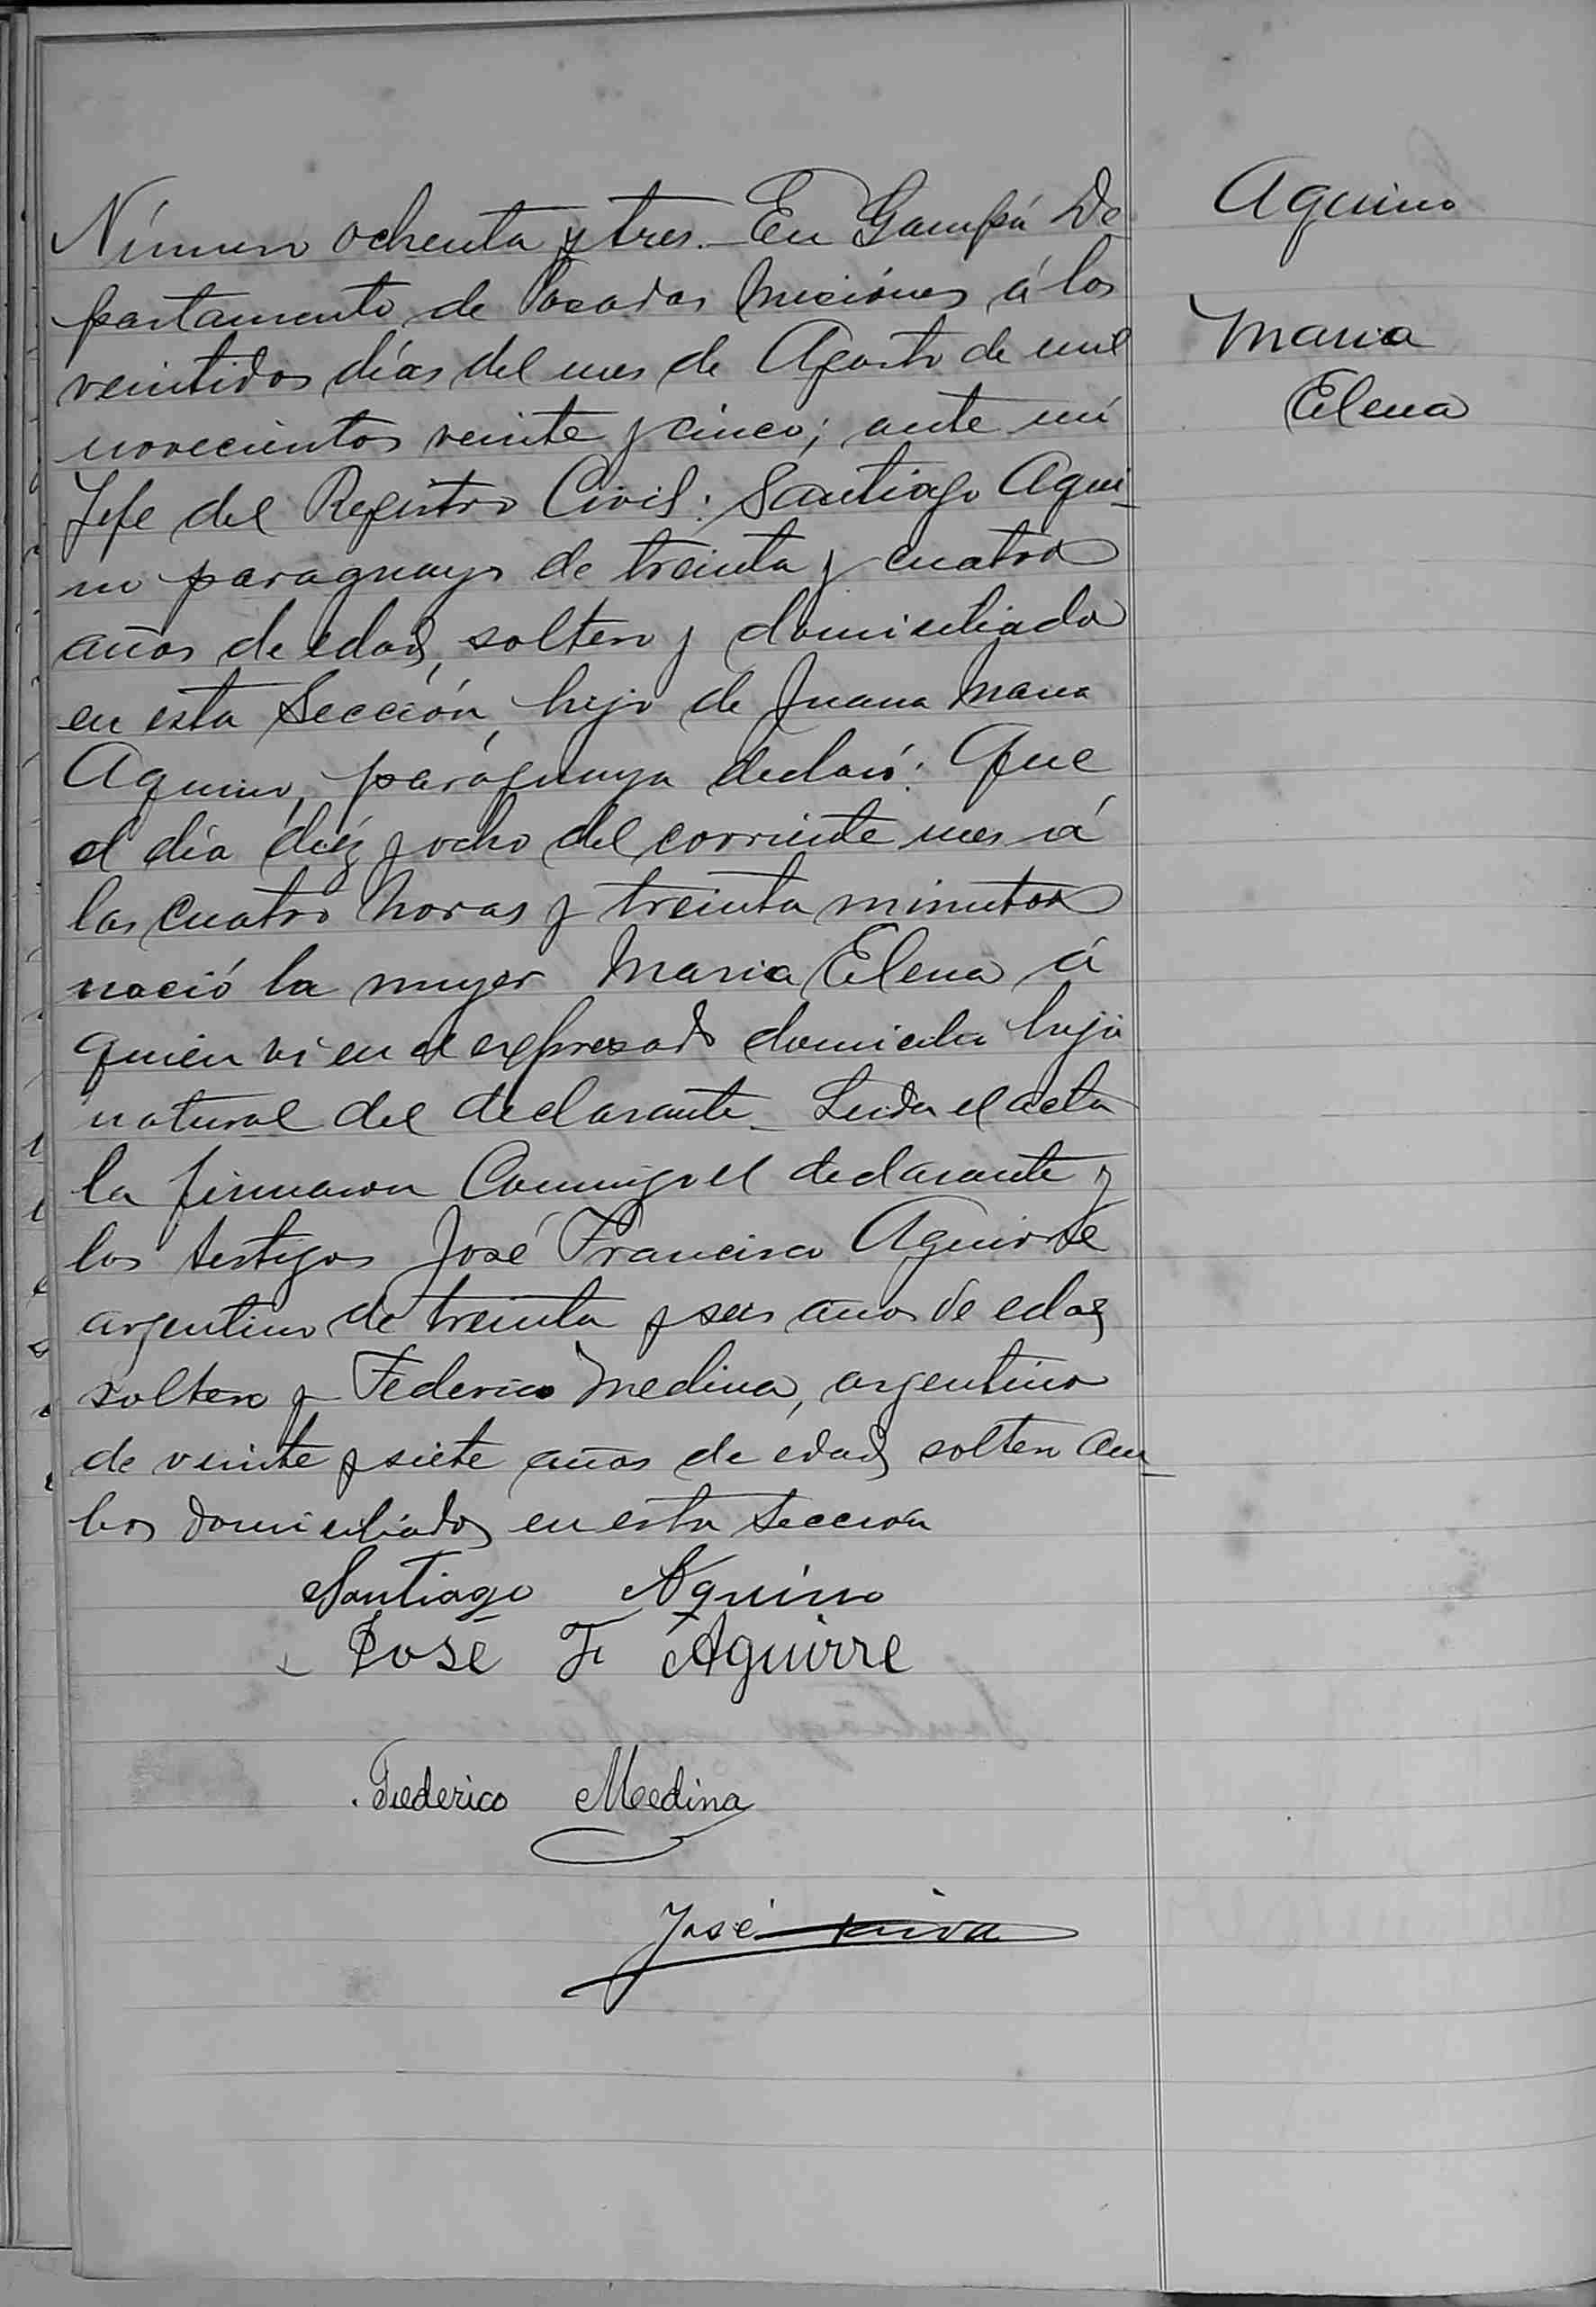 Número ochenta y tres.- En Garupá De
partamento de Posadas Misiónes á los
veintidos días del mes de Agosto de mil
novecientos veinte y cinco; ante mi
Jefe del Registro Civil: Santiago Aqui-
no paraguayo de treinta y cuatro
años de edad, soltero y domiciliado
en esta Sección, hijo de Juana Maria
Aquino, paraguaya declaró: Que
el día diéz y ocho del corriente mes á
las cuatro horas y treinta minutos
nació la mujer Maria Elena á
quien vi en el expresado domicilio hija
natural del declarante. Leida el acta
la firmaron Conmigo el declarante y
los testigos José Francisco Aguirre
argentino de treinta y seis años de edad
soltero y Federico Medina, argentino
de veinte y siete años de edad soltero am-
bos domiciliados en esta Sección
Santiago Aquino
José F Aguirre
Federico Medina
José
Aquino
Maria
Elena